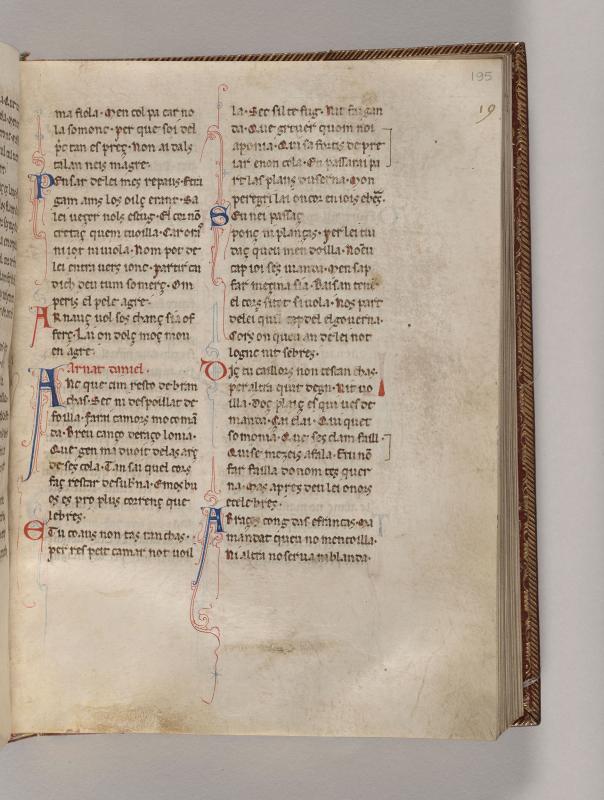 195
19
ma fiola. Men col pa car no
la somonc. per que soi del
tan es preç. Non ai dals
talan neis magre.
Pensar de lei mes repaus. Etri
gam ams los oilç
lei veçer nols estug. El cor nō
cretaç quem tuoilla. Car
ni iot ni uiola. Nom pot de
lei entra uers ionc. partir cu
dich deu tum somerç. Om
peris el pele agre.
Arnauç uol sos chanç sia of
ferç. Lai on dolç moç mou
en agre.
Arnat daniel.
Anc que cim resto de bran
chas. Sec ni despoillat de
foilla. Farai camors mo comā
da. Breu canço de raiço lonia.
Que gen ma duoit de las arç
de ses cola. Tan sai quel cors
faç restar de suberna. Emos bu
os es pro plus correnç que
lebres.
E Tu coaus non tas tan chas.
per respeit camar not uoil
la. Sec sil te fug. Nit fai gan
da. Que greuer quom noi
aponia. Qui sa fortis de pre
iar e non cola. En passarai pa
rt las planç duserna. Mon
peregri lai on cor en iois
Seu nei passaç
ponç ni planças. per lei cui
daç queu men doilla. No eu
cap ioi ses uianda. Men sap
far meçina sia. Baisan tene
el cors sitot si uola. Nos part
de lei quil capdel el gouerna.
Cors on queu an de lei not
logne nit sebres.
Dic tu caillors non testan chas.
per altra quit degn. Nit uo
illa. Doç plaiç es qui ues de
manda. Çai e lai. Qui quet
somonia. Que ses clam faill.
Qui se mezeis afola. E tu nō
far failla don om tes quer
na. Mas apres deu lei onors
e celebres.
A Braços cong das efrancas. Ma
mandat queu no men coilla.
Ni altra no serua ni blanda.